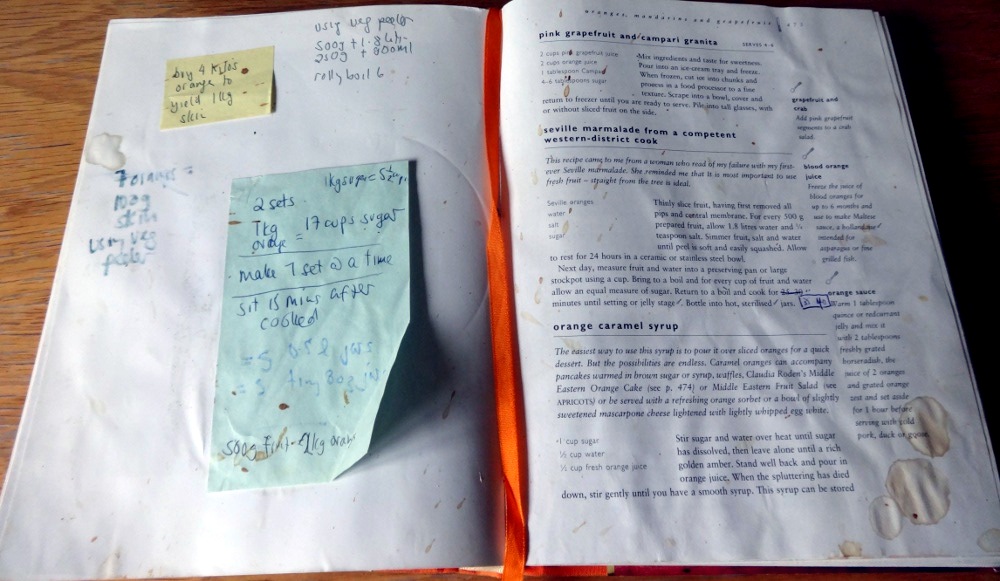 using veg peeler
500g + 1.8 litr
250g + 900ml
rolly boil 6
buy 4 kilos
orange to
yield 1kg
skin
7 oranges =
100g
skin
using veg
peeler
1kg sugar = 5½ cups
2 sets
1kg
orange = 17 cups sugar
make 1 set @ a time
sit 15 mins after
cooked
= 5 0.5 l jars
= 3 tiny 80g jars
500g fruit =
oranges, mandarins and grapefruit 473
pink grapefruit and campari granita
SERVES 4-6
2 cups pink grapefruit juice
2 cups orange juice
1 tablespoon Campari
4–6 tablespoons sugar
Mix ingredients and taste for sweetness.
Pour into an ice-cream tray and freeze.
When frozen, cut into chunks and
process in a food processor to a fine
texture. Scrape into a bowl, cover and
return to freezer until you are ready to serve. Pile into tall glasses, with
or without sliced fruit on the side.
seville marmalade from a competent
western-district cook
This recipe came to me from a woman who read of my failure with my first-
ever Seville marmalade. She reminded me that it is most important to use
fresh fruit – straight from the tree is ideal.
Seville oranges
water
salt
sugar
Thinly slice fruit, having first removed all
pips and central membrane. For every 500 g
prepared fruit, allow 1.8 litres water and ½
teaspoon salt. Simmer fruit, salt and water
until peel is soft and easily squashed. Allow
to rest for 24 hours in a ceramic or stainless steel bowl.
Next day, measure fruit and water into a preserving pan or large
stockpot using a cup. Bring to a boil and for every cup of fruit and water
allow an equal measure of sugar. Return to a boil and cook for
minutes until setting or jelly stage. Bottle into hot, sterilised jars.
orange caramel syrup
The easiest way to use this syrup is to pour it over sliced oranges for a quick
dessert. But the possibilities are endless. Caramel oranges can accompany
pancakes warmed in brown sugar or syrup, waffles, Claudia Roden's Middle
Eastern Orange Cake (see p. 474) or Middle Eastern Fruit Salad (see
APRICOTS) or be served with a refreshing orange sorbet or a bowl of slightly
sweetened mascarpone cheese lightened with lightly whipped egg white.
1 cup sugar
½ cup water
½ cup fresh orange juice
Stir sugar and water over heat until sugar
has dissolved, then leave alone until a rich
golden amber. Stand well back and pour in
orange juice. When the spluttering has died
down, stir gently until you have a smooth syrup. This syrup can be stored
grapefruit and
crab
Add pink grapefruit
segments to a crab
salad.
blood orange
juice
Freeze the juice of
blood oranges for
up to 6 months and
use to make Maltese
sauce, a hollandaise
intended for
asparagus or fine
grilled fish.
orange sauce
Warm 1 tablespoon
quince or redcurrant
jelly and mix it
with 2 tablespoons
freshly grated
horseradish, the
juice of 2 oranges
and grated orange
zest and set aside
for 1 hour before
serving with cold
pork, duck or goose.